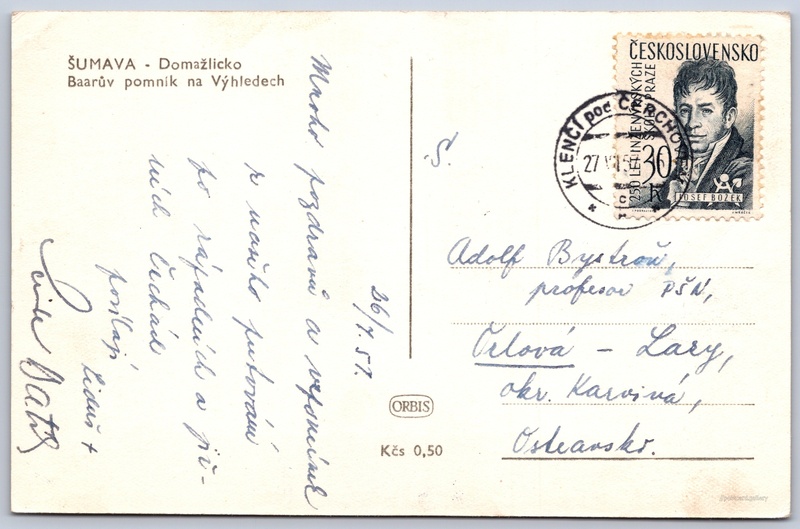 ŠUMAVA - Domažlicko
Baarův pomník na Výhledech
Mnoho pozdravů a vzpomínek
z našeho putování
po západních a již-
ních Čechách
posílají
Liduš +
26/7. 57.
ORBIS
Kčs 0,50
ČESKOSLOVENSKO
250 LET INŽENÝRSKÝCH
ŠKOL V PRAZE
30
JOSEF BOŽEK
KLENČÍ pod ČERCHOVEM
27
S.
Adolf Bystroň,
profesor PŠN,
Orlová - Lazy,
okr. Karviná,
Ostravsko.